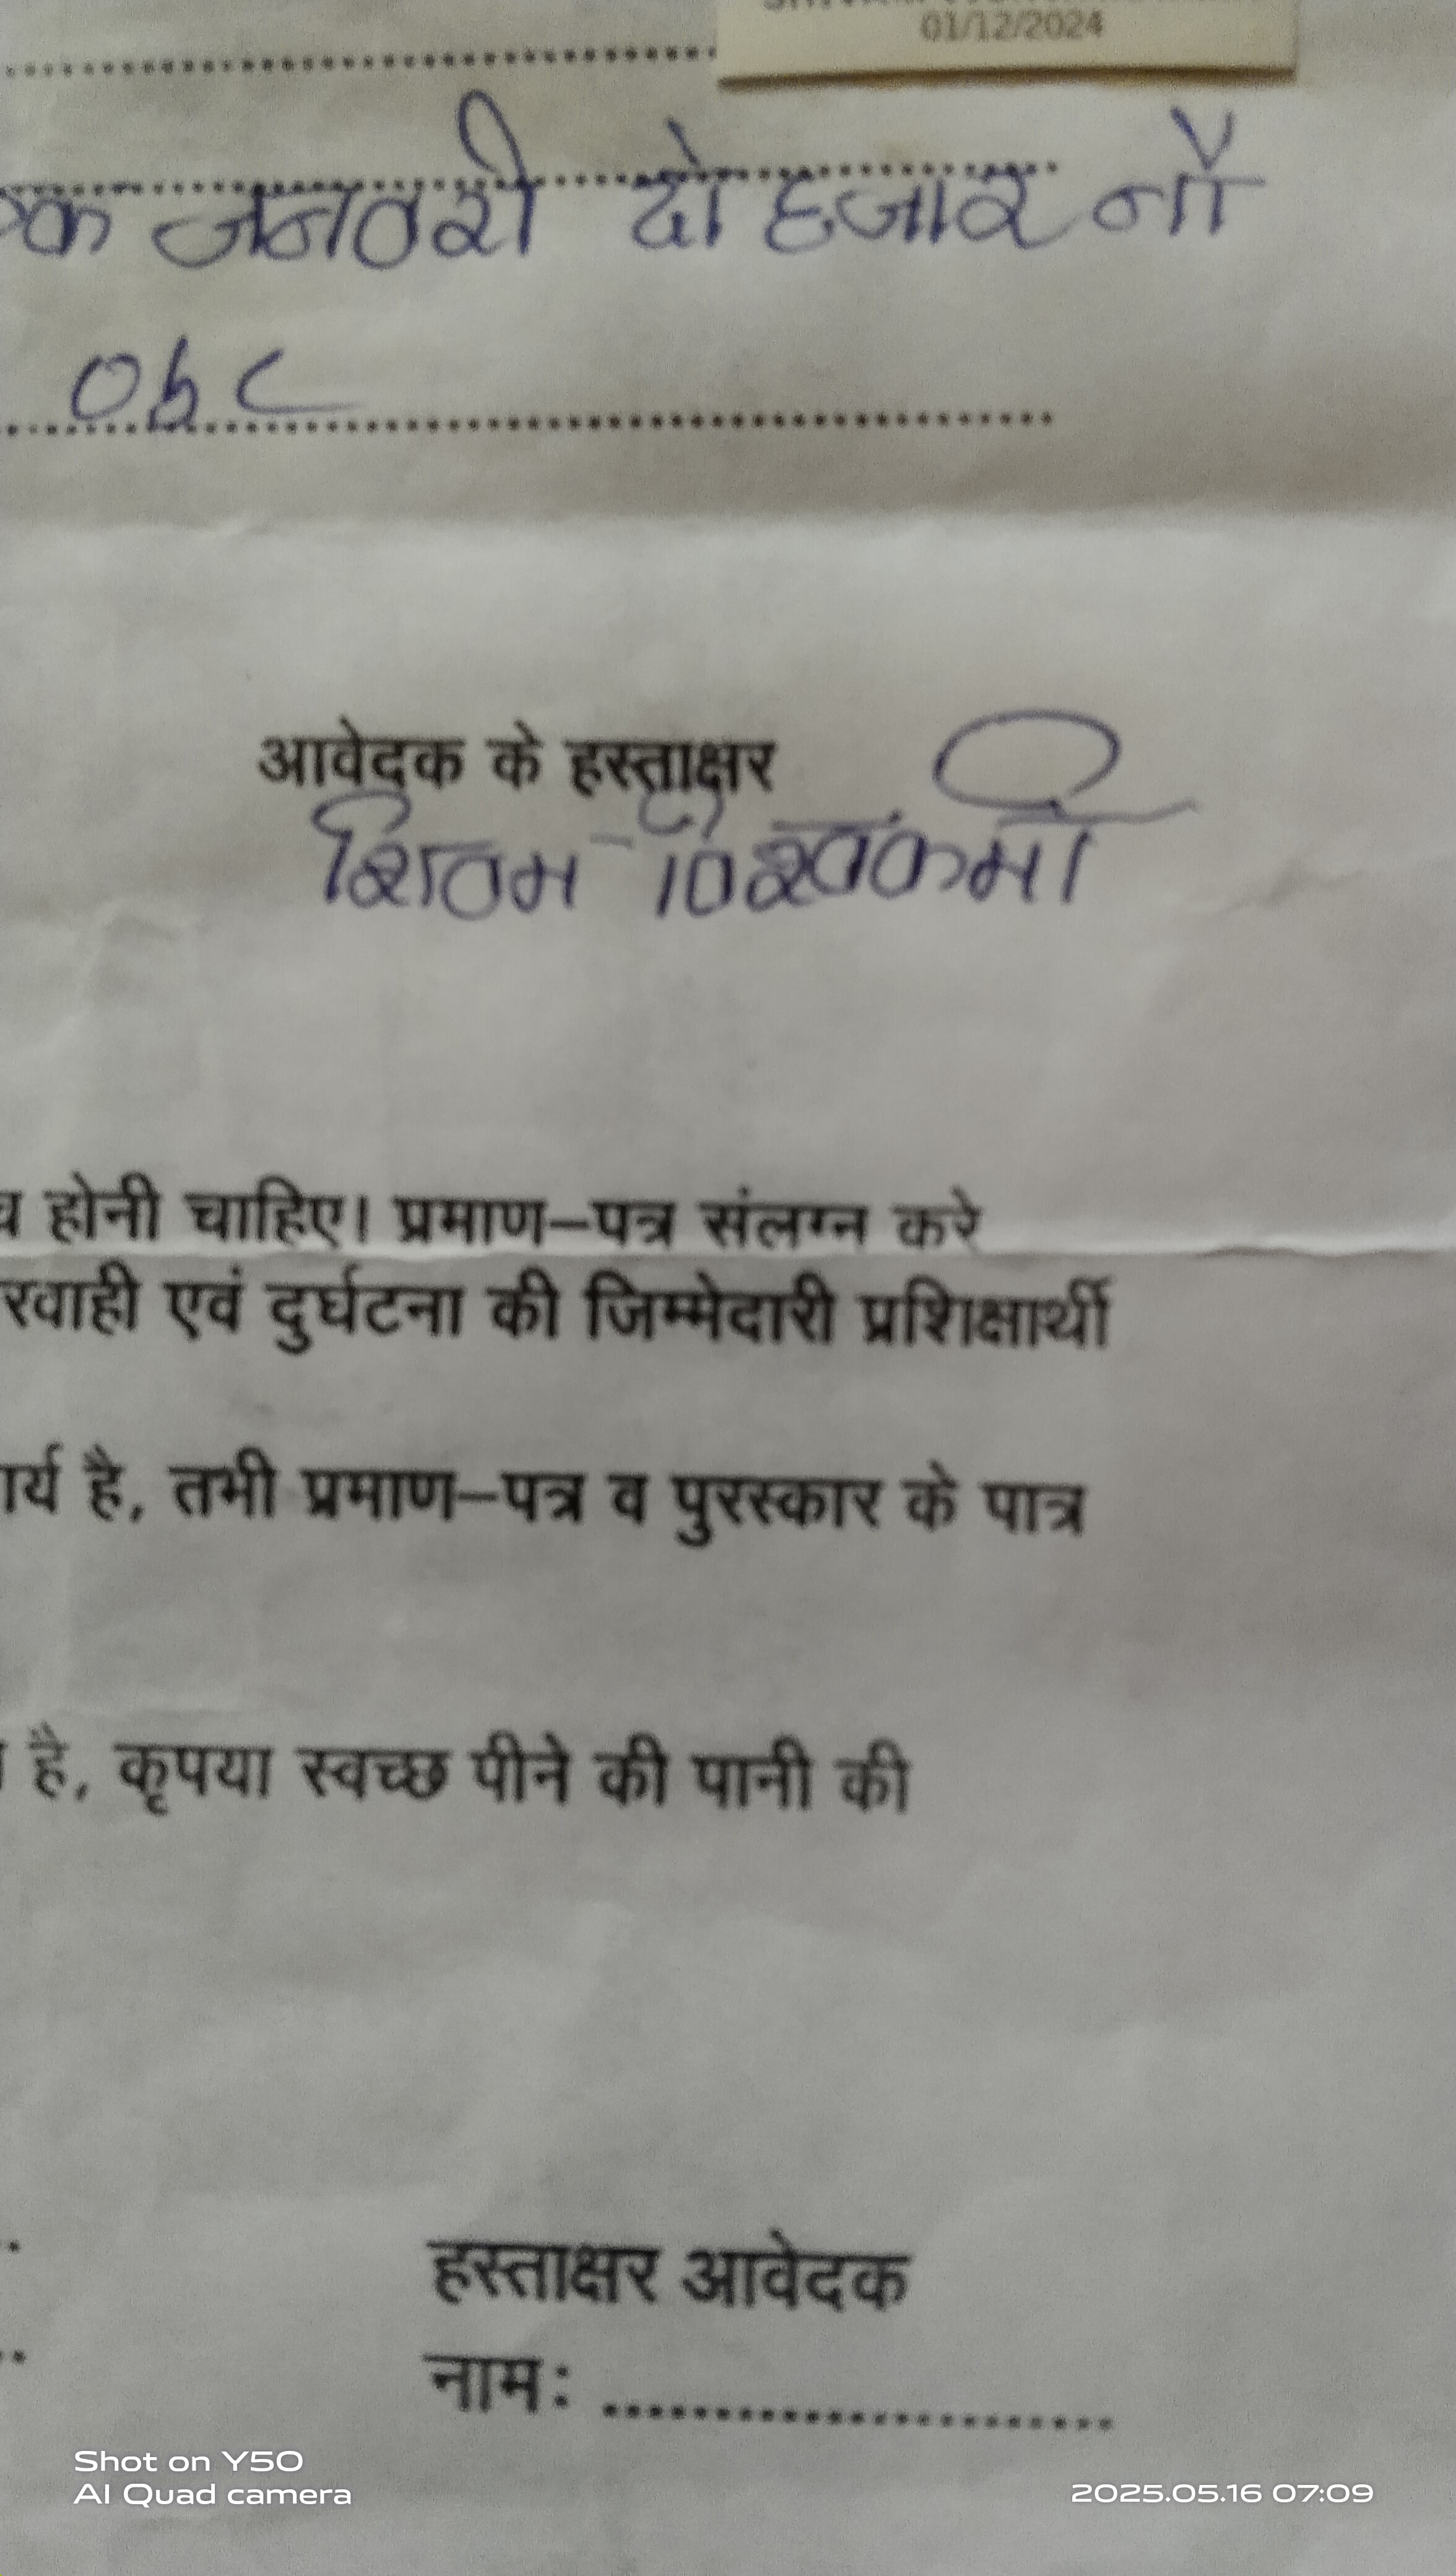 01/12/2024
जनवरी दो हजार नौ
obc
आवेदक के हस्ताक्षर
शिवम विश्वकर्मा
होनी चाहिए। प्रमाण–पत्र संलग्न करे
रवाही एवं दुर्घटना की जिम्मेदारी प्रशिक्षार्थी
र्य है, तभी प्रमाण–पत्र व पुरस्कार के पात्र
है, कृपया स्वच्छ पीने की पानी की
हस्ताक्षर आवेदक
नामः ..................................
Shot on Y50
AI Quad camera
2025.05.16 07:09